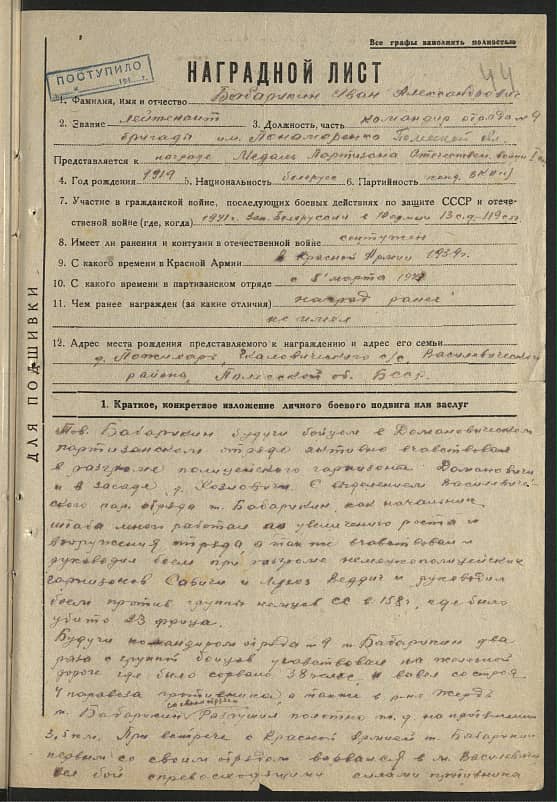 Все графы заполнить полностью
ПОСТУПИЛО
44
НАГРАДНОЙ ЛИСТ
1. Фамилия, имя и отчество Бабарикин Иван Александрович
2. Звание лейтенант 3. Должность, часть командир отряда № 9
бригады им. Пономаренко
Представляется к награде Медаль Партизана Отечествен. войны
4. Год рождения 1919 5. Национальность белорус 6. Партийность канд. ВКП(б)
7. Участие в гражданской войне, последующих боевых действиях по защите СССР и отече-
ственной войне (где, когда) 1941 г. Зап. Белоруссии в 10 армии 13 с.д. 119 с.п.
8. Имеет ли ранения и контузии в отечественной войне контужен
9. С какого времени в Красной Армии в Красной Армии 1939 г.
10. С какого времени в партизанском отряде с 8 марта
11. Чем ранее награжден (за какие отличия) наград ранее
не имел
12. Адрес места рождения представляемого к награждению и адрес его семьи
с/с, Василевического
района, Полесской об. БССР.
ДЛЯ ПОДШИВКИ
1. Краткое, конкретное изложение личного боевого подвига или заслуг
Тов. Бабарикин будучи бойцом в Домановическом
партизанском отряде активно участвовал
в разгроме полицейского гарнизона Домановичи
и в засаде д. Козловичи. С выделением Василевиче-
ского пар. отряда т. Бабарикин, как начальник
штаба много работал по увеличению роста и
вооружения отряда а так же участвовал и
руководил боем при разгроме немецкополицейских
гарнизонов Савичи и и руководил
боем против группы немцев СС в 158 г. где было
убито 23 фрица.
Будучи командиром отряда № 9 т. Бабарикин два
раза с группой бойцов участвовал на железной
дороге где было сорвано и вывел со строя
4 паровоза противника, а также в р-не
т. Бабарикин разрушил полотно ж.д. на протяжении
3,5 км. При встрече с Красной армией т. Бабарикин
первым со своим отрядом ворвался в м. Василевичи
бой с превосходящими силами противника